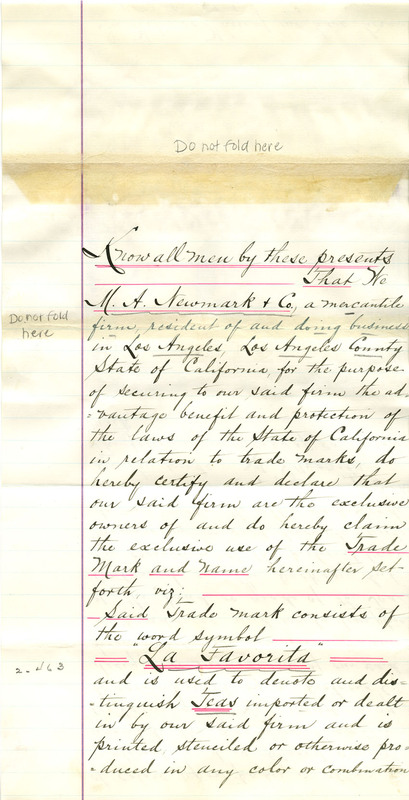 Do not fold here
Know all men by these presents
That We
M. A. Newmark & Co., a mercantile
Do not fold
here
firm, resident of and doing business
in Los Angeles, Los Angeles County
State of California, for the purpose
of securing to our said firm the ad-
-vantage benefit and protection of
the laws of the State of California
in relation to trade marks, do
hereby certify and declare that
our said firm are the exclusive
owners of and do hereby claim
the exclusive use of the Trade
Mark and Name hereinafter set-
forth, viz:
Said Trade mark consists of
the word symbol
"La Favorita"
2-463
and is used to denote and dis-
-tinguish Teas imported or dealt
in by our said firm and is
printed, stenciled or otherwise pro-
-duced in any color or combination